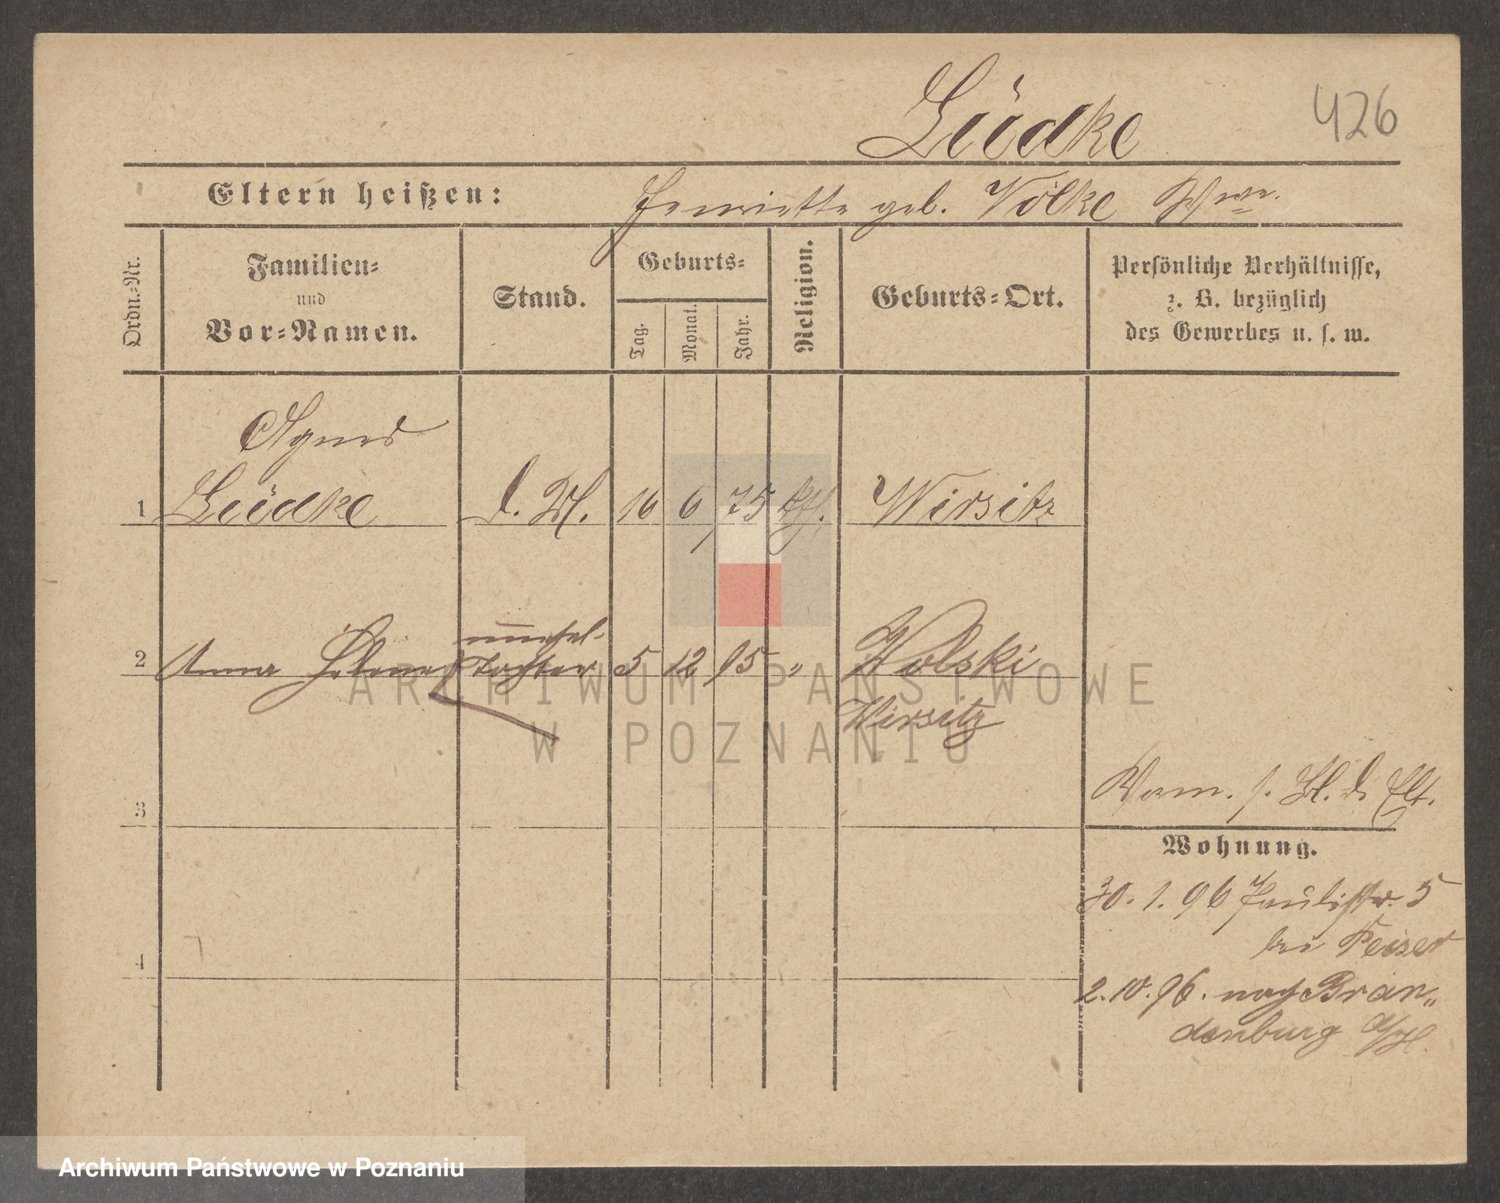 Lüdke
426
Eltern heißen: Henriette geb. Völke Wwe.
Ordn.-Nr.
Familien-
und
Vor-Namen.
Stand.
Geburts-
Tag.
Monat.
Jahr.
Religion.
Geburts-Ort.
Persönliche Verhältnisse,
z. B. bezüglich
des Gewerbes u. s. w.
Agnes
1 Lüdke d. M. 16 6 75 Wirsitz
unehel.
2 Anna Helene Tochter 5 12 95 " Wolski
Wirsitz
ARCHIWUM PAŃSTWOWE
W POZNANIU
3
Vorm. s. Bl. d. Elt.
Wohnung.
30. 1. 96 Paulistr. 5
bei Peiser
4
2. 10. 96. nach Bran„
denburg a/H.
Archiwum Państwowe w Poznaniu